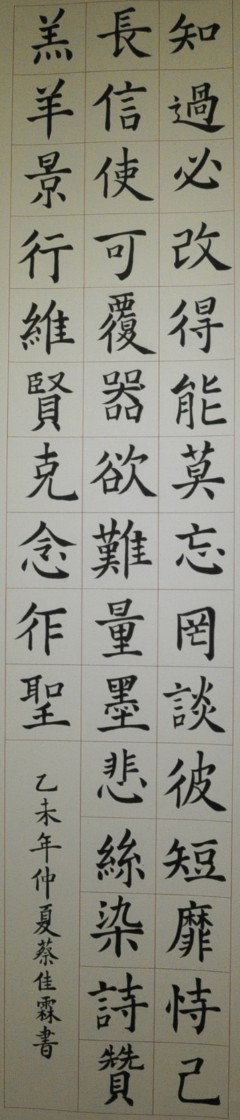 知過必改得能莫忘罔談彼短靡恃己
長信使可覆器欲難量墨悲絲染詩贊
羔羊景行維賢克念作聖
乙未年仲夏蔡佳霖書